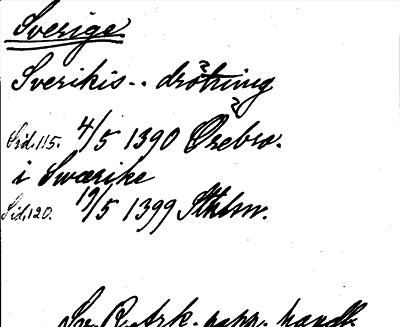 Sverige
Sverikis.. drötning
Sid. 115. 4/5 1390 Örebro.
i Swærike
Sid. 120. 19/5 1399 Sthlm.
Sv. papp. handl.